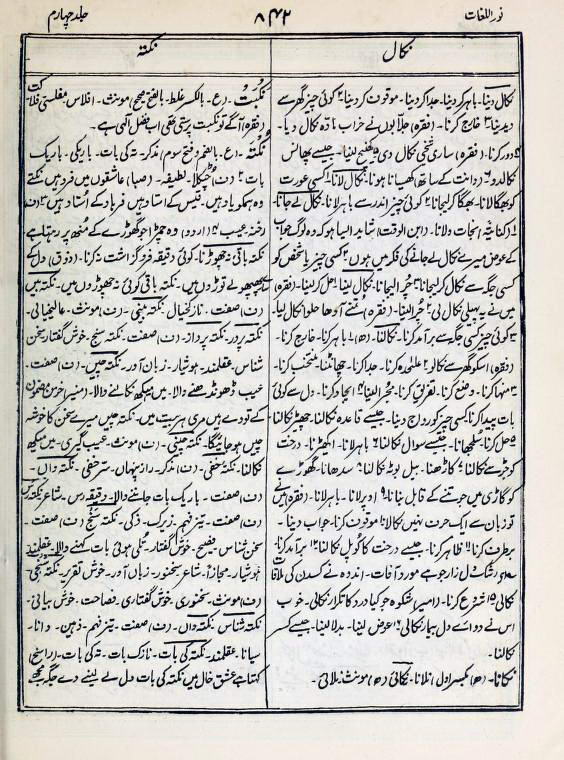 نور اللغات
۸۴۲
جلد چہارم
نکال
نکال دینا۔ باہر کر دینا۔ جدا کر دینا۔ موقوف کر دینا ۲ کوئی چیز گھر سے
دیدینا ۳ خارج کرنا۔ (فقرہ) جلابوں نے خراب مادہ نکال دیا۔
۴ دور کرنا۔ (فقرہ) ساری شیخی نکال دی ۵ کھینچ لینا۔ جیسے پھانس
نکالدو ۶ (دانت کے ساتھ) کھسیانا ہونا۔ نکال لانا۔ کسی عورت
کو بھگا لانا۔ بھگا کر لیجانا ۲ کوئی چیز اندر سے باہر لانا۔ نکال لے جانا۔
کنایۃً نجات دلانا۔ (ابن الوقت) شاید ایسا ہو کہ وہ لوگ جواب
کے عوض میرے نکال لے جانے کی فکر میں ہوں ۲ کسی چیز یا شخص کو
کسی جگہ سے نکال کر لیجانا ۳ چرا لیجانا۔ نکال لینا۔ حل کر لینا۔ (فقرہ)
میں نے یہ پہیلی نکال لی ۲ چرا لینا۔ (فقرہ) تمنے آدھا حلوا نکال لیا
۳ کوئی چیز کسی جگہ سے برآمد کرنا۔ نکالنا۔ (ھ) ۱ باہر کرنا۔ خارج کرنا۔
(فقرہ) اسکو گھر سے نکالو ۲ علیٰحدہ کرنا۔ جدا کرنا۔ چھانٹنا۔ منتخب کرنا۔
۳ منہا کرنا۔ وضع کرنا۔ تفریق کرنا۔ مجرا لینا ۴ ایجاد کرنا۔ دل سے کوئی
بات پیدا کرنا کسی چیز کو رواج دینا۔ جیسے قاعدہ نکالنا۔ چھیڑ نکالنا
۵ حل کرنا۔ سلجھانا۔ جیسے سوال نکالنا ۶ باہر لانا۔ اکھیڑنا۔ درخت
کو جڑ سے نکالنا ۷ کاڑھنا۔ بیل بوٹہ نکالنا ۸ سدھانا۔ گھوڑے
کو گاڑی میں جوتنے کے قابل بنانا ۹ اوپر لانا۔ باہر لانا۔ (فقرہ) میں نے
تو زبان سے ایک حرف نہیں نکالا ۱۰ موقوف کرنا۔ جواب دینا۔
برطرف کرنا ۱۱ ظاہر کرنا۔ جیسے درخت کا کوپل نکالنا ۱۲ برآمد کرنا۔
دل زار جو ہے مورد آفات۔ اندوہ نے کس دن کی ملاقات
نکالی ۱۵ شروع کرنا۔ (امیر) شکوہ جو کیا درد کا تکرار نکالی۔ خوب
اس نے دوائے دل بیمار نکالی ۱۶ عوض لینا۔ بدلا لینا۔ جیسے کسر
نکالنا۔
نکانا۔ (ھ) بکسر اول) نلانا۔ نکائی (ھ) مونث۔ نلائی۔
نکتہ
نکبت۔ (ع۔ بالکسر غلط۔ بالفتح صحیح) مونث۔ افلاس۔ مفلسی۔ فلاکت
(فقرہ) آگے تو نکبت برستی تھی اب فضل الٰہی ہے۔
نکتہ۔ (ع۔ بالضم و فتح سوم) مذکر۔ تہ کی بات۔ باریکی۔ باریک
بات ۲ (ف) چٹکلا۔ لطیفہ۔ (صبا) عاشقوں میں فرد ہیں نکتے
وہ ہمکو یاد ہیں۔ قیس کے استاد ہیں فرہاد کے استاد ہیں ۳ (ف)
رخنہ۔ عیب ۴ (اردو) وہ چمڑا جو گھوڑے کے منھ پر رہتا ہے
نکتہ باقی نہ چھوڑنا۔ کوئی دقیقہ فروگذاشت نہ کرنا۔ (ذوق) دل کے
سب پھپھولے توڑوں میں۔ نکتہ باقی کوئی نہ چھوڑوں میں۔ نکتہ بیں
(ف) صفت۔ نازک خیال۔ نکتہ بینی۔ (ف) مونث۔ عالیخیالی۔
نکتہ پرور۔ نکتہ پرداز۔ (ف) صفت۔ نکتہ سنج۔ خوش گفتار۔ سخن
شناس۔ عقلمند۔ ہوشیار۔ زبان آور۔ نکتہ چیں۔ (ف) صفت۔
عیب ڈھونڈھنے والا۔ مین میکھ نکالنے والا۔ (منیر) خرمن مضموں
کے تودے ہیں مری ہر بیت میں۔ نکتہ چیں میرے سخن کا خوشہ
چیں ہو جائیگا۔ نکتہ چینی۔ (ف) مونث۔ عیب گیری۔ مین میکھ
نکالنا۔ نکتہ خفی۔ (ف) مذکر۔ راز پنہاں۔ سر خفی۔ نکتہ داں۔
(ف) صفت۔ باریک بات جاننے والا۔ دقیقہ رس۔ شاعر۔ نکتہ رس
(ف) صفت۔ تیز فہم۔ زیرک۔ ذکی۔ نکتہ سنج (ف) صفت۔
سخن شناس۔ فصیح۔ خوش گفتار۔ تلی ہوئی بات کہنے والا۔ عقلمند
ہوشیار۔ مجازاً شاعر سخنور۔ زباں آور۔ خوش تقریر۔ نکتہ سنجی
(ف) مونث۔ سخنوری۔ خوش گفتاری۔ فصاحت۔ خوش بیانی۔
نکتہ شناس۔ نکتہ داں۔ (ف) صفت۔ تیز فہم۔ ذہین۔ دانا۔
سیانا۔ عقلمند۔ نکتہ کی بات۔ نازک بات۔ تہ کی بات۔ (راسخ)
کہتا ہے عشق خال میں نکتہ کی بات دل بے لینے دے جگہ مجھے